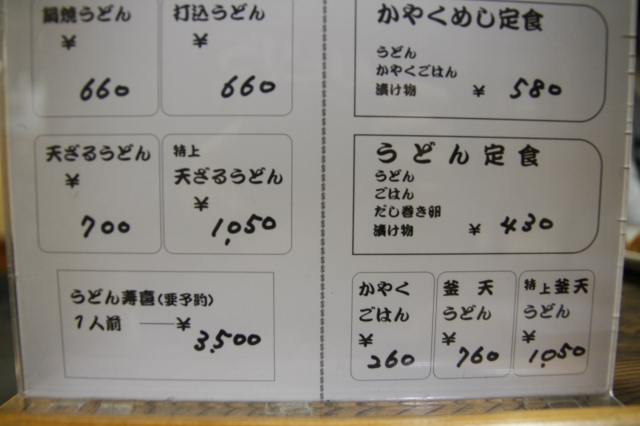 鍋焼うどん
¥
660
打込うどん
¥
660
天ざるうどん
¥
700
特上
天ざるうどん
¥
1,050
うどん寿喜(要予約)
1人前 ──¥
3,500
かやくめし定食
うどん
かやくごはん
漬け物 ¥ 580
うどん定食
うどん
ごはん
だし巻き卵
漬け物 ¥ 430
かやく
ごはん
¥
260
釜 天
うどん
¥
760
特上釜天
うどん
¥
1,050